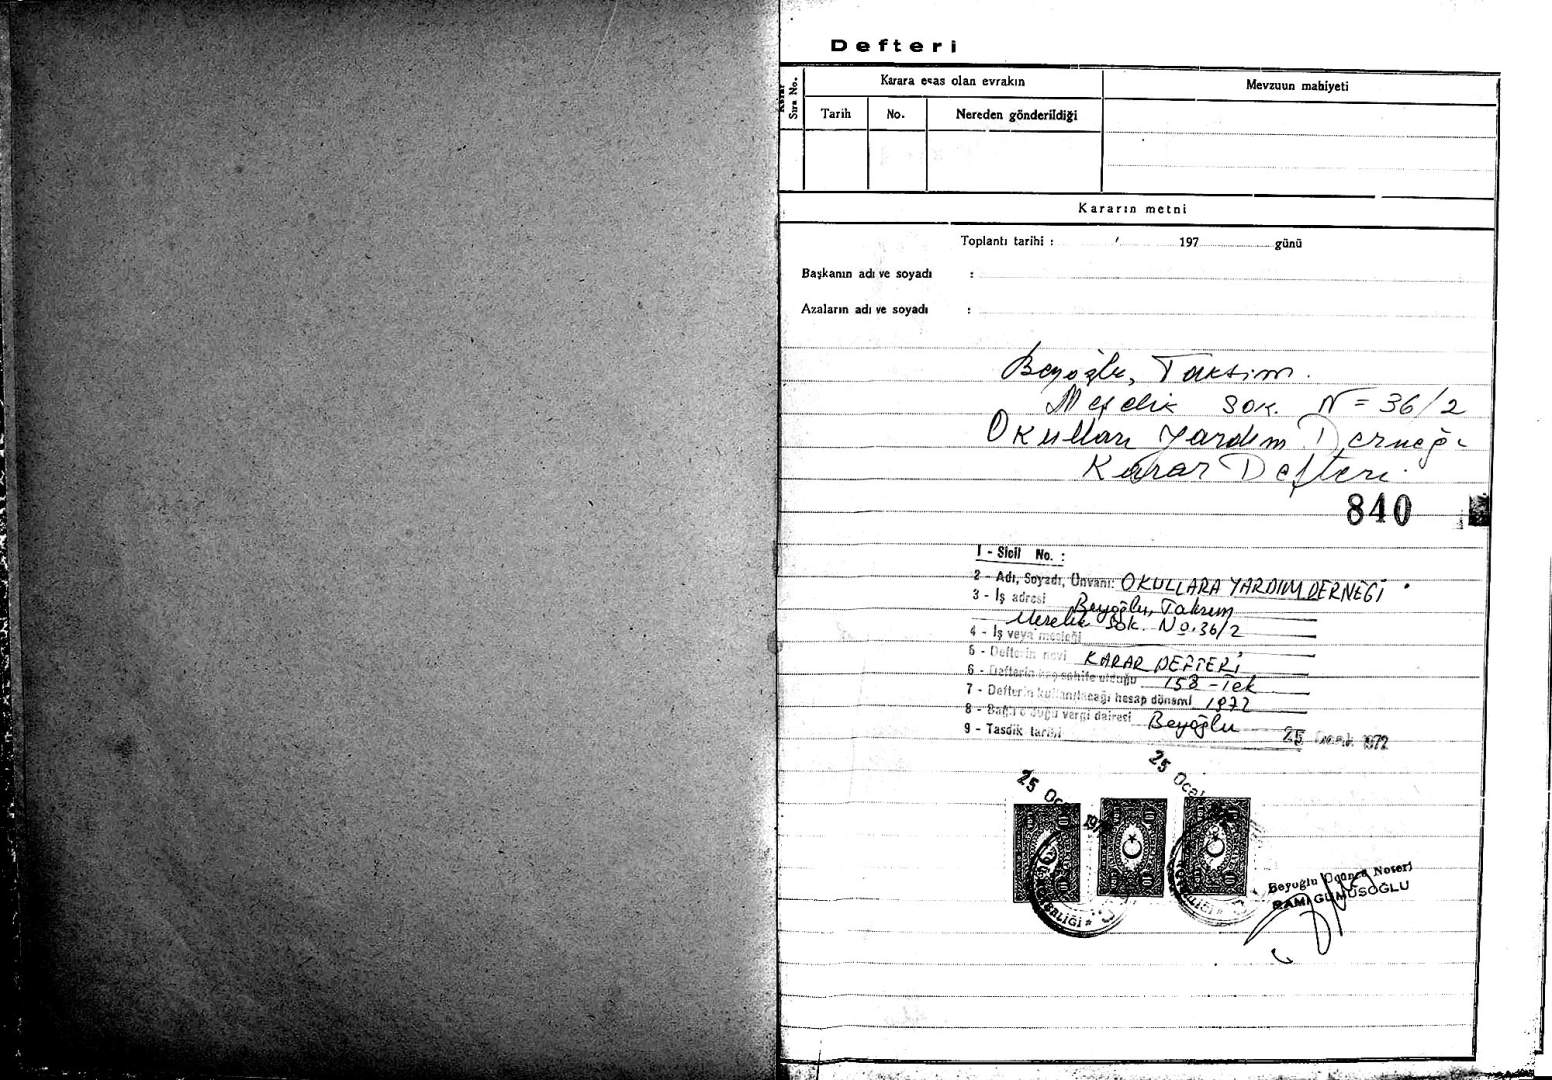 Defteri
Karar Sıra No.
Karara esas olan evrakın
Mevzuun mahiyeti
Tarih
No.
Nereden gönderildiği
Kararın metni
Toplantı tarihi : / 197 günü
Başkanın adı ve soyadı :
Azaların adı ve soyadı :
Beyoğlu, Taksim.
Meşelik sok. N= 36/2
Okulları Yardım Derneği
Karar Defteri.
840
1 - Sicil No. :
2 - Adı, Soyadı, Ünvanı: OKULLARA YARDIM DERNEĞİ
3 - İş adresi Beyoğlu, Taksim
Meşelik Sok. No. 36/2
4 - İş veya mesleği
5 - Defterin nevi KARAR DEFTERİ
6 - Defterin kaç sahife olduğu 158 - Tek
7 - Defterin kullanılacağı hesap dönemi 1972
8 - Bağlı olduğu vergi dairesi Beyoğlu
9 - Tasdik tarihi 25 Ocak 1972
25 Oc 197
25 Ocal
Beyoğlu Üçüncü Noteri
RAMİ GÜMÜŞOĞLU